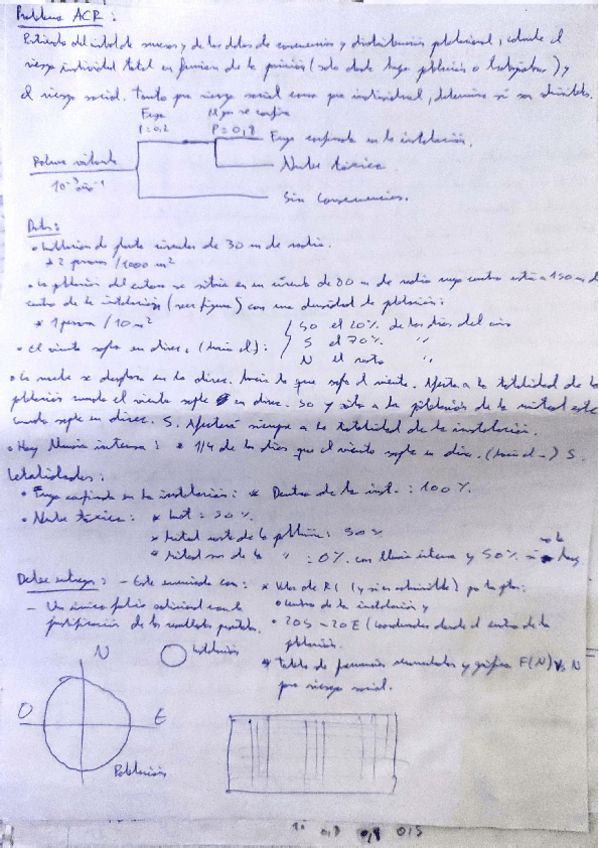 Problema ACR:
Partiendo del árbol de sucesos y de los datos de consecuencias y distribución poblacional, calcule el
riesgo individual total en función de la posición (solo donde haya población o trabajadores) y
el riesgo social. Tanto para riesgo social como para individual, determine si son admisibles.
Fuga
P=0,2
P=0,8
Fuga confinada en la instalación.
Nube tóxica.
10⁻³ año⁻¹
Sin consecuencias.
Datos:
• Instalación de planta circular de 30 m de radio.
* 2 personas /1000 m²
• La población del entorno se sitúa en un círculo de 80 m de radio cuyo centro está a 150 m del
centro de la instalación (ver figura) con una densidad de población:
* 1 persona / 10 m²
• El viento sopla en direc. (hacia el):
SO el 20% de los días del año
S el 70% "
N el resto "
• La nube se desplaza en la direc. hacia la que sopla el viento. Afecta a la totalidad de la
población cuando el viento sopla en direc. SO y sólo a la población de la mitad este
cuando sopla en direc. S. Afectará siempre a la totalidad de la instalación.
• Hay lluvia intensa: * 1/4 de los días que el viento sopla en direc. (hacia el) S.
Letalidades:
• Fuga confinada en la instalación: * Dentro de la inst.: 100%.
• Nube tóxica: * Inst = 30%
* Mitad norte de la población: 50%
* Mitad sur de la " : 0% con lluvia intensa y 50% si no la hay
Debe entregar: - Este enunciado con: * Valor de RI (y si es admisible) para los ptos:
• centro de la instalación y
- Un único folio adicional con la
justificación de los resultados pedidos.
• 20S - 20E (coordenadas desde el centro de la
población.
* Tabla de frecuencias acumuladas y gráfica F(N) vs N
para riesgo social.
N
Instalación
O
E
Población